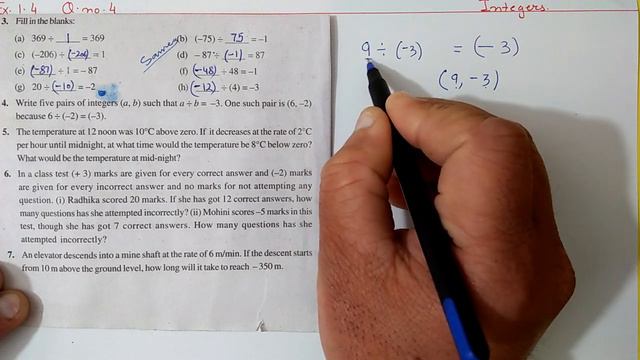 Ex. 1.4 Q. no. 4 Integers.
3. Fill in the blanks:
(a) 369 ÷ 1 = 369 (b) (−75) ÷ 75 = −1
(c) (−206) ÷ (-206) = 1 (d) − 87 ÷ (-1) = 87
(e) (-87) ÷ 1 = − 87 (f) (-48) ÷ 48 = −1
(g) 20 ÷ (-10) = −2 (h) (-12) ÷ (4) = −3
4. Write five pairs of integers (a, b) such that a ÷ b = −3. One such pair is (6, −2)
because 6 ÷ (−2) = (−3).
5. The temperature at 12 noon was 10°C above zero. If it decreases at the rate of 2°C
per hour until midnight, at what time would the temperature be 8°C below zero?
What would be the temperature at mid-night?
6. In a class test (+ 3) marks are given for every correct answer and (−2) marks
are given for every incorrect answer and no marks for not attempting any
question. (i) Radhika scored 20 marks. If she has got 12 correct answers, how
many questions has she attempted incorrectly? (ii) Mohini scores −5 marks in this
test, though she has got 7 correct answers. How many questions has she
attempted incorrectly?
7. An elevator descends into a mine shaft at the rate of 6 m/min. If the descent starts
from 10 m above the ground level, how long will it take to reach − 350 m.
9 ÷ (-3) = (-3)
(9, -3)